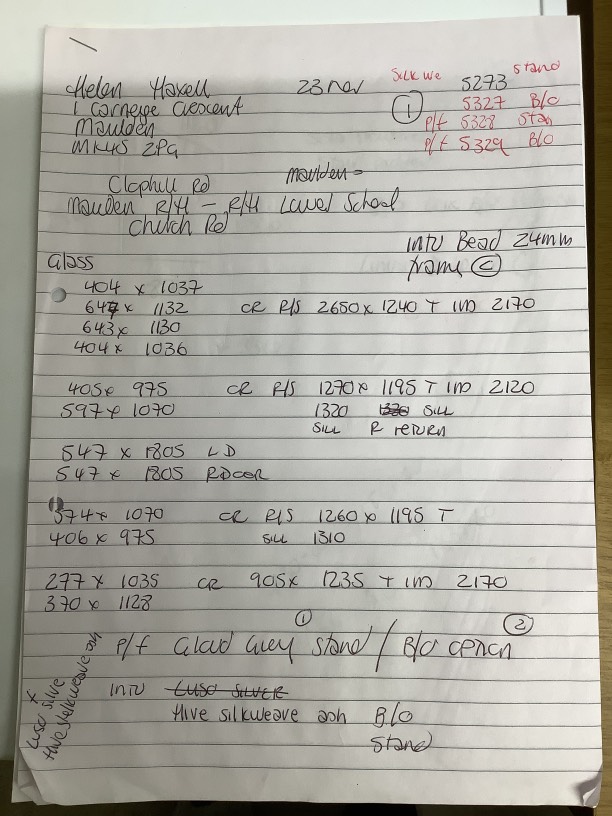 Helen Haxell 23 Nov Silkwe 5273 Stand
1 Carnegie Crescent ① 5327 B/O
Maulden P/f 5328 Stan
MK45 2PG P/f 5329 B/O
Clophill Rd Maulden
Maulden R/H - R/H Lower School
Church Rd
INTO Bead 24mm
Glass frame Ⓒ
404 x 1037
647 x 1132 CR R/S 2650 x 1240 T IND 2170
643 x 1130
404 x 1036
405 x 975 CR R/S 1270 x 1195 T IND 2120
597 x 1070 1320 1330 Sill
Sill R return
547 x 1805 LD
547 x 1805 RDOOR
574 x 1070 CR R/S 1260 x 1195 T
406 x 975 Sill 1310
277 x 1035 CR 905 x 1235 T IND 2170
370 x 1128
① ②
P/f Glad Grey Stand / B/O
INTO Luso Silver
Hive silkweave ash B/O
Stand
x
Luso Silve
Hive silkweave ash